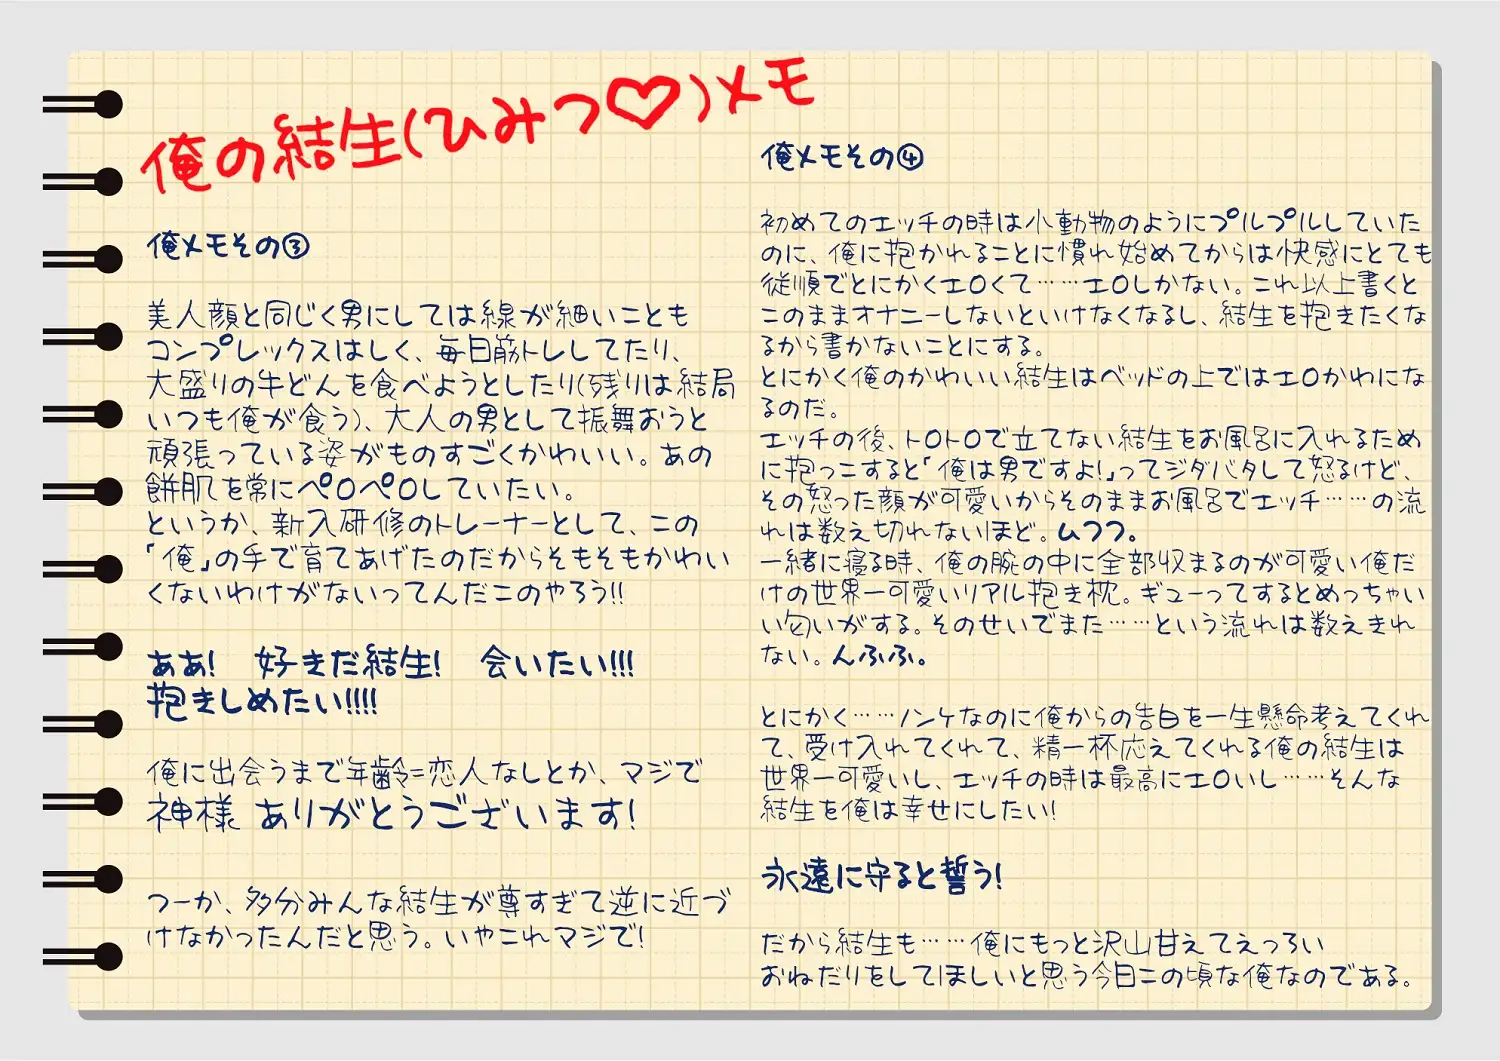 俺の結生(ひみつ♡)メモ
俺メモその③
美人顔と同じく男にしては線が細いことも
コンプレックスはしく、毎日筋トレしてたり、
大盛りの牛どんを食べようとしたり(残りは結局
いつも俺が食う)、大人の男として振舞おうと
頑張っている姿がものすごくかわいい。あの
餅肌を常にペロペロしていたい。
というか、新入研修のトレーナーとして、この
「俺」の手で育てあげたのだからそもそもかわい
くないわけがないってんだこのやろう!!
ああ! 好きだ結生! 会いたい!!!
抱きしめたい!!!!
俺に出会うまで年齢=恋人なしとか、マジで
神様 ありがとうございます!
つーか、多分みんな結生が尊すぎて逆に近づ
けなかったんだと思う。いやこれマジで!
俺メモその④
初めてのエッチの時は小動物のようにプルプルしていた
のに、俺に抱かれることに慣れ始めてからは快感にとても
従順でとにかくエロくて……エロしかない。これ以上書くと
このままオナニーしないといけなくなるし、結生を抱きたくな
るから書かないことにする。
とにかく俺のかわいい結生はベッドの上ではエロかわにな
るのだ。
エッチの後、トロトロで立てない結生をお風呂に入れるため
に抱っこすると「俺は男ですよ!」ってジダバタして怒るけど、
その怒った顔が可愛いからそのままお風呂でエッチ……の流
れは数え切れないほど。ムフフ。
一緒に寝る時、俺の腕の中に全部収まるのが可愛い俺だ
けの世界一可愛いリアル抱き枕。ギューってするとめっちゃい
い匂いがする。そのせいでまた……という流れは数えきれ
ない。んふふ。
とにかく……ノンケなのに俺からの告白を一生懸命考えてくれ
て、受け入れてくれて、精一杯応えてくれる俺の結生は
世界一可愛いし、エッチの時は最高にエロいし……そんな
結生を俺は幸せにしたい!
永遠に守ると誓う!
だから結生も……俺にもっと沢山甘えてえっろい
おねだりをしてほしいと思う今日この頃な俺なのである。